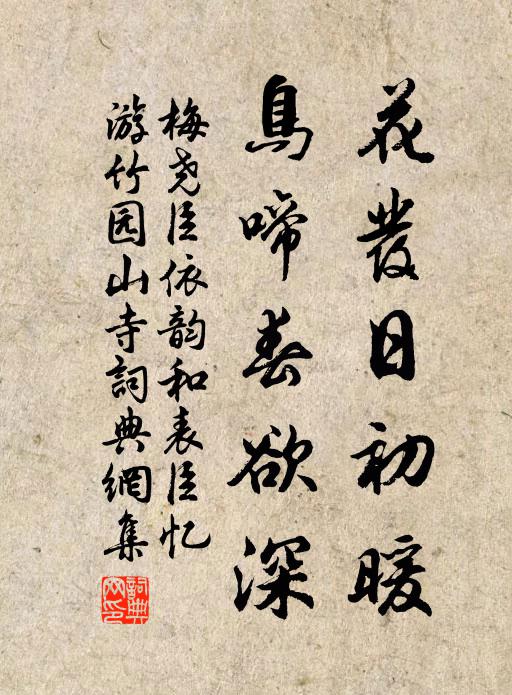 花發日初暖
鳥啼春欲深
梅尧臣依韵和表臣忆
游竹园山寺詞典網集
詞典網印